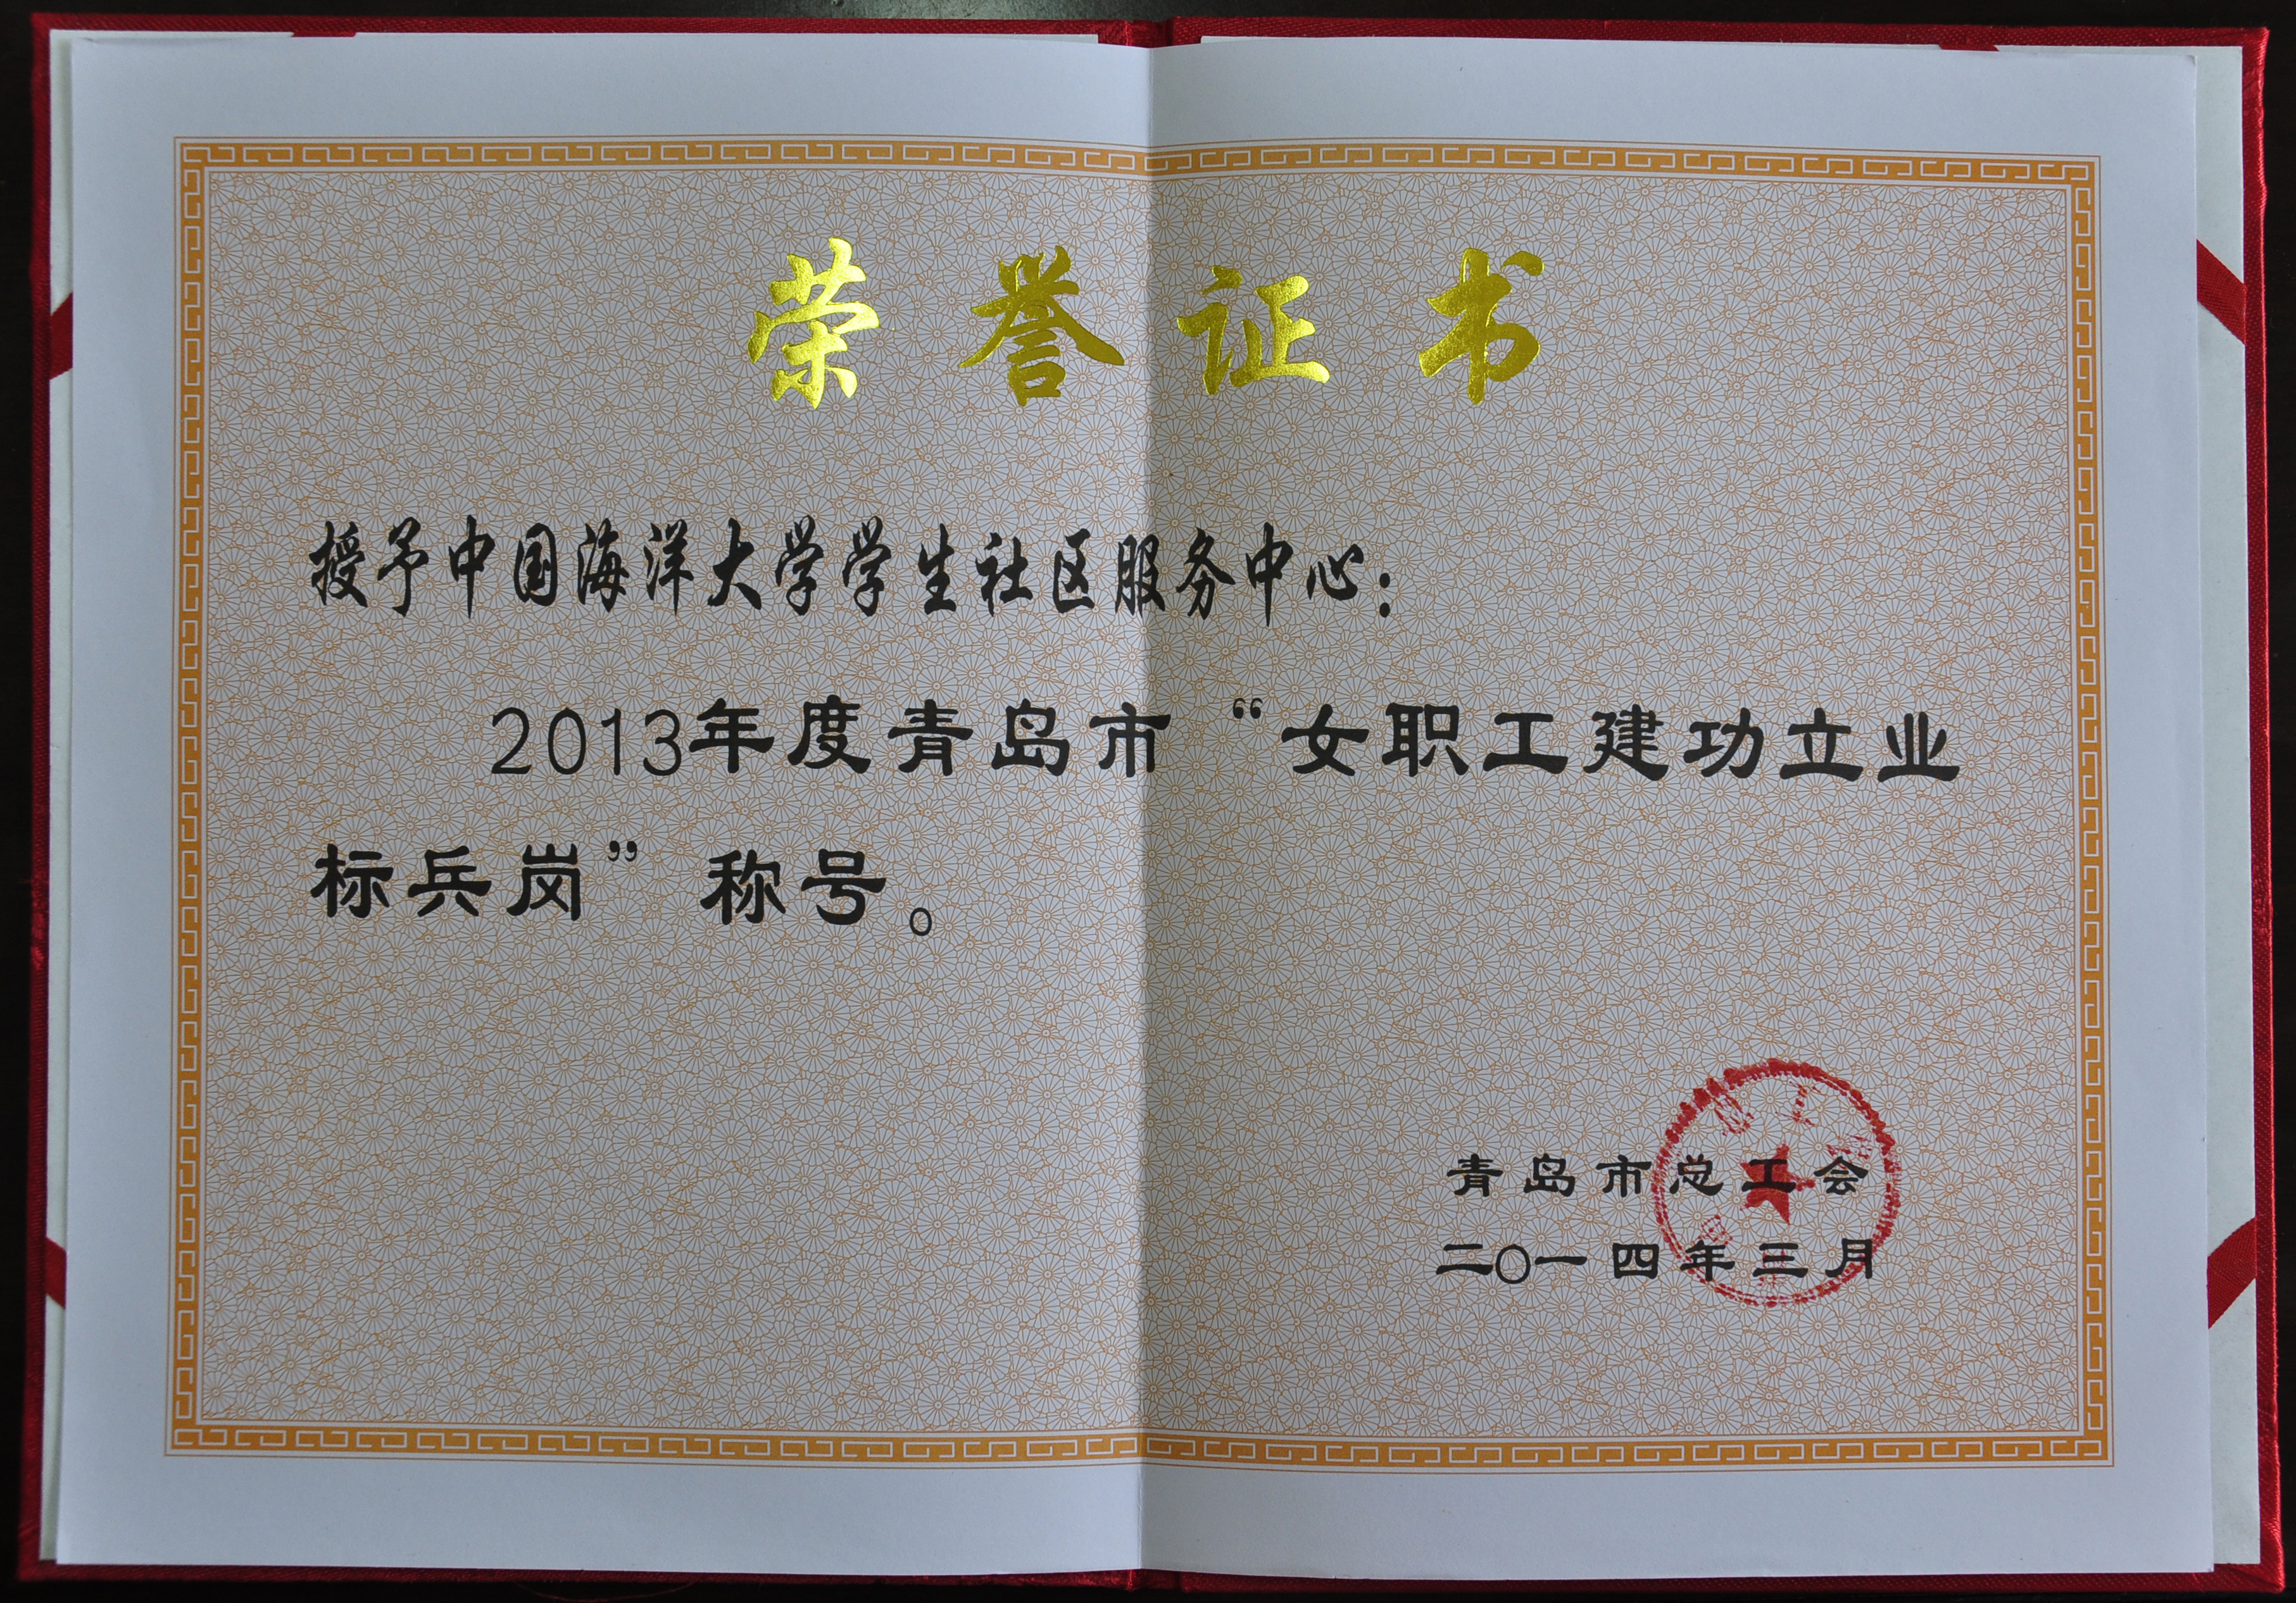 荣誉证书
授予中国海洋大学学生社区服务中心：
2013年度青岛市“女职工建功立业
标兵岗”称号。
青岛市总工会
二〇一四年三月